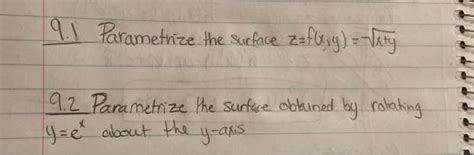 9.1 Parametrize the surface z=f(x,y)=-√x+y
9.2 Parametrize the surface obtained by rotating
y=eˣ about the y-axis